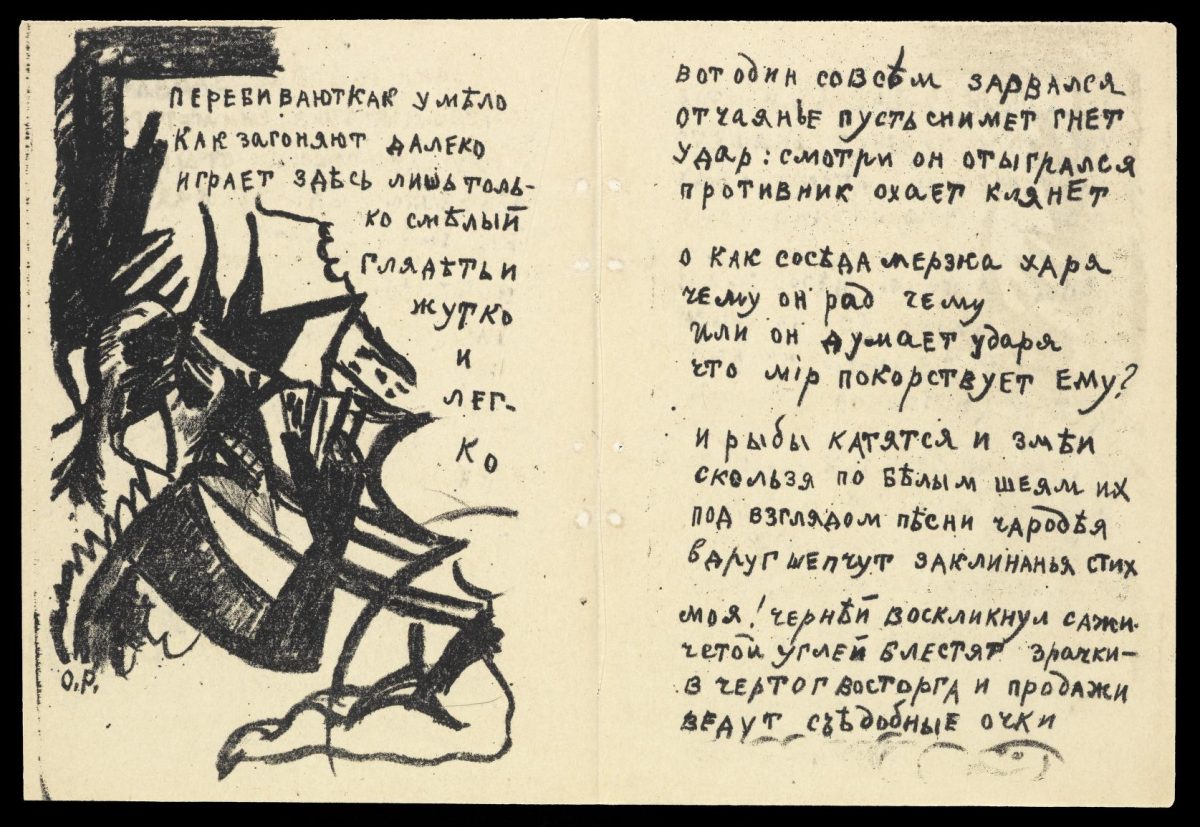 перебивают как умѣло
как загоняют далеко
играет здѣсь лишь толь-
ко смѣлый
глядѣть и
жутко
и
лег-
ко
О.Р.
вот один совсѣм зарвался
отчаянье пусть снимет гнет
удар: смотри он отыгрался
противник охает клянет
о как сосѣда мерзка харя
чему он рад чему
или он думает ударя
что мір покорствует ему?
и рыбы катятся и змѣи
скользя по бѣлым шеям их
под взглядом пѣсни чародѣя
вдруг шепчут заклинанья стих
моя! чернѣй воскликнул сажи
четой углей блестят зрачки-
в чертог восторга и продажи
ведут съѣдобные очки